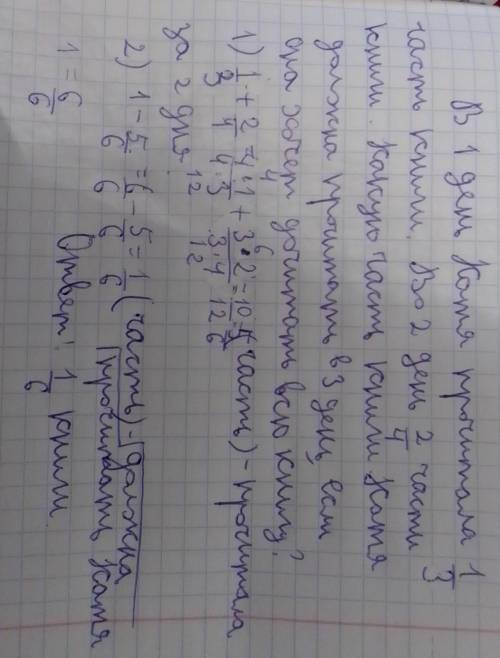 В 1 день Катя прочитала 1/3
часть книги. Во 2 день 2/4 части
книги. Какую часть книги Катя
должна прочитать в 3 день, если
она хочет дочитать всю книгу?
1) 1/3 + 2/4 = 4·1/4·3 + 3·2/3·4 = 10/12 = 5/6 (часть) - прочитала
за 2 дня.
2) 1 - 5/6 = 6/6 - 5/6 = 1/6 (часть) - должна
прочитать Катя
1 = 6/6
Ответ: 1/6 книги